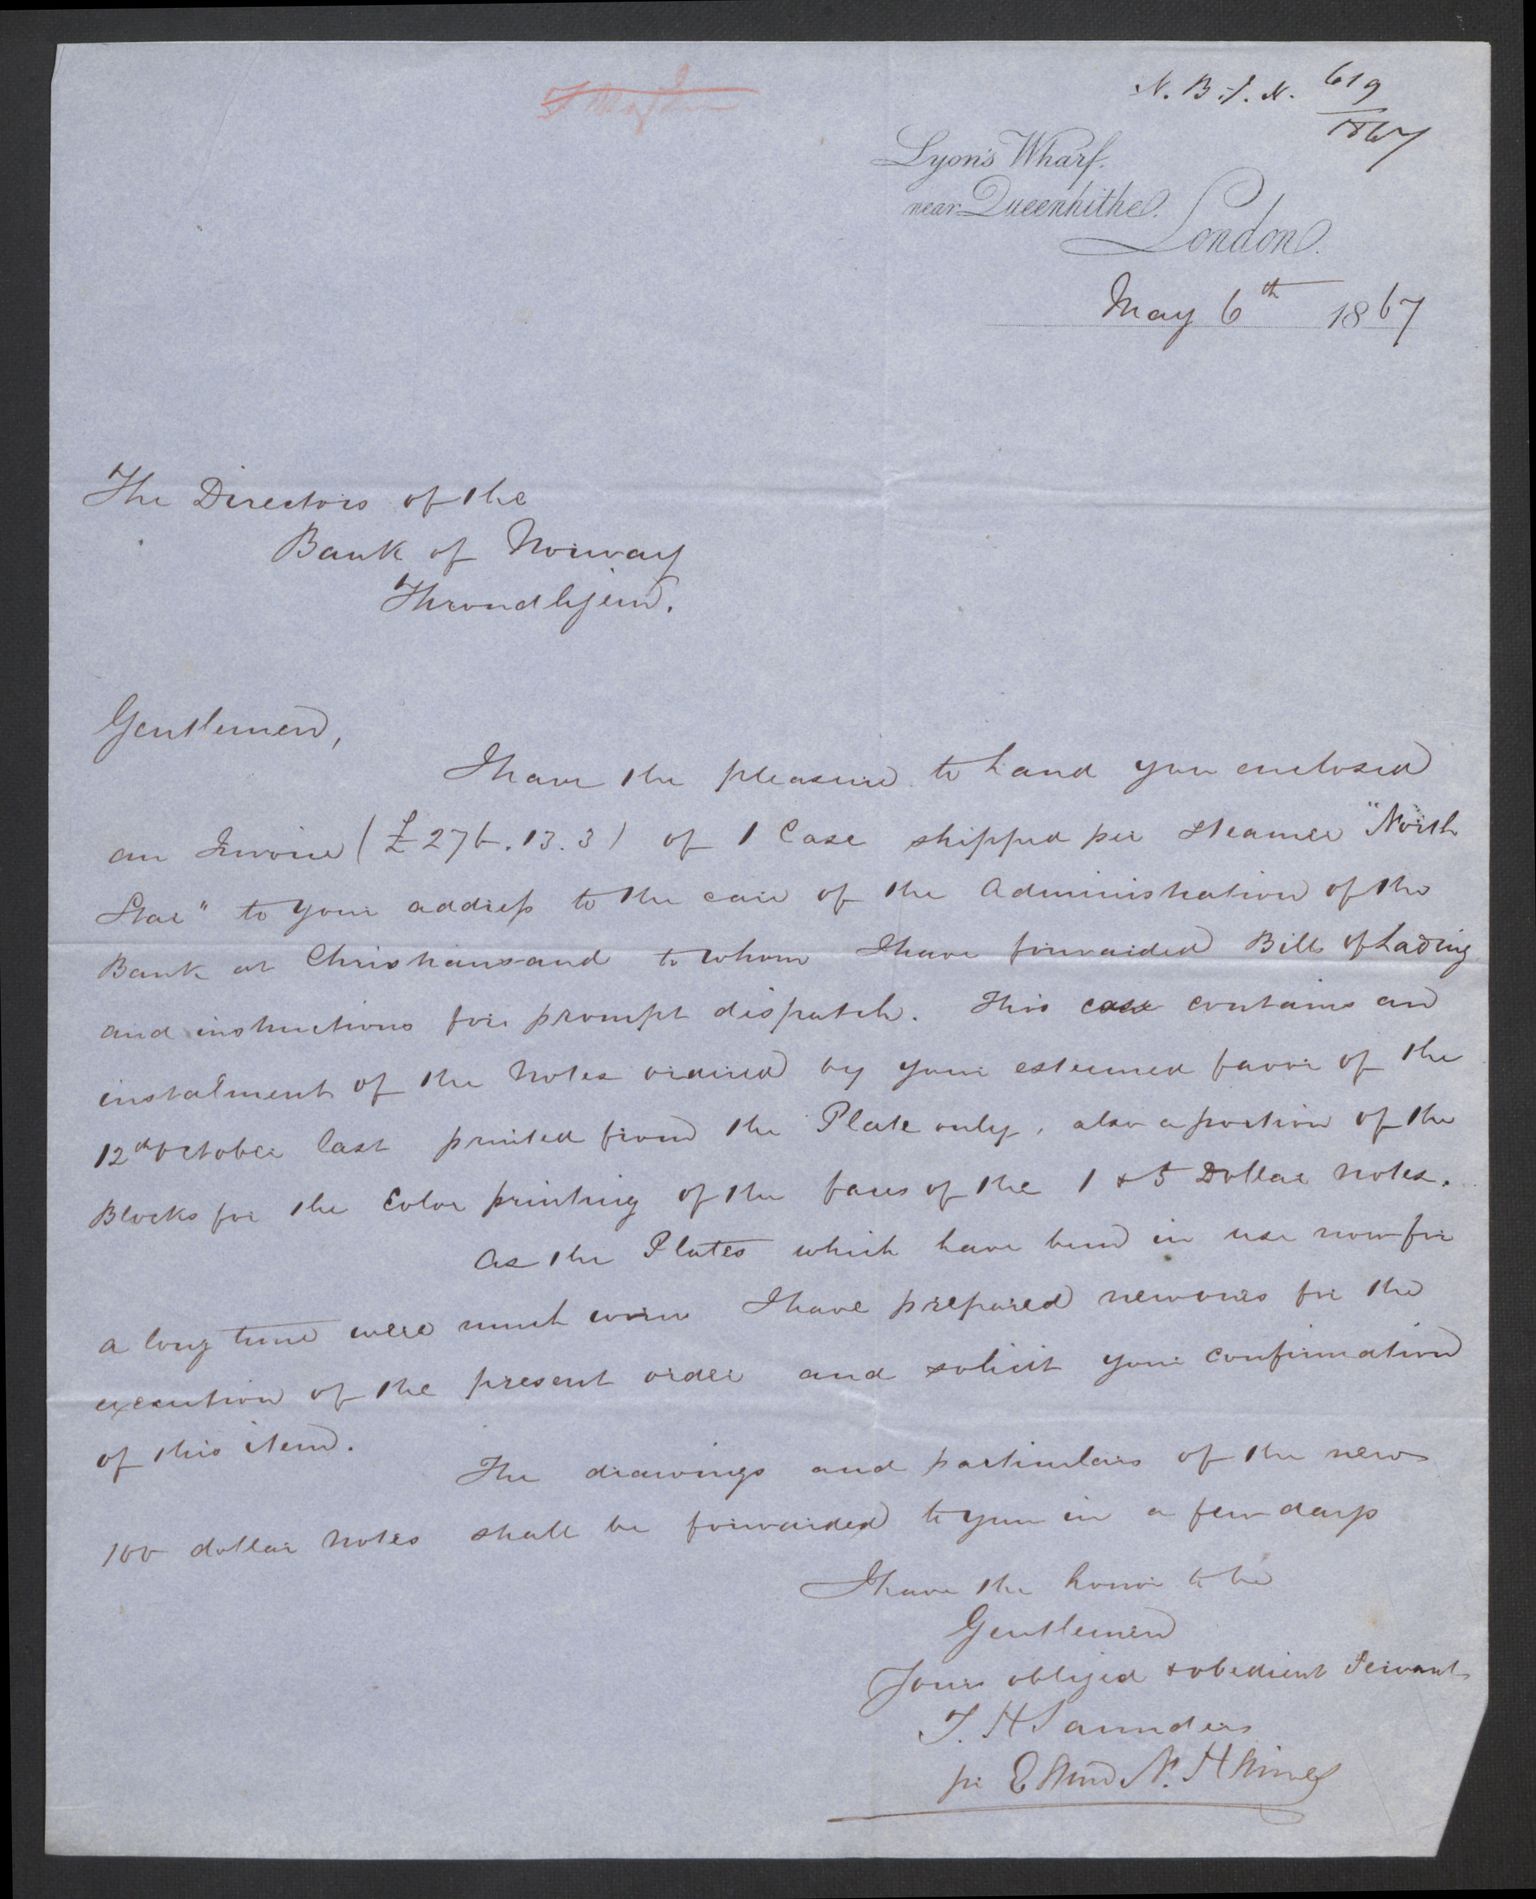 N. B. J. N. 619
1867
Lyon's Wharf.
near Queenhithe.
London.
May 6th 1867
The Directors of the
Bank of Norway
Throndhjem.
Gentlemen,
I have the pleasure to hand you enclosed
an Invoice (£276.13.3) of 1 Case shipped per steamer "North
Star" to your address to the care of the Administration of the
Bank at Christiansand to whom I have forwarded Bill of Lading
and instructions for prompt dispatch. This case contains an
instalment of the Notes ordered by your esteemed favor of the
12th October last printed from the Plate only, also a portion of the
Blocks for the Color printing of the faces of the 1 & 5 Dollar Notes.
As the Plates which have been in use now for
a long time were much worn I have prepared new ones for the
execution of the present order and solicit your confirmation
of this item.
The drawings and particulars of the new
100 dollar Notes shall be forwarded to you in a few days
I have the honor to be
Gentlemen
Yours obliged & obedient Servant
T. H Saunders
pr